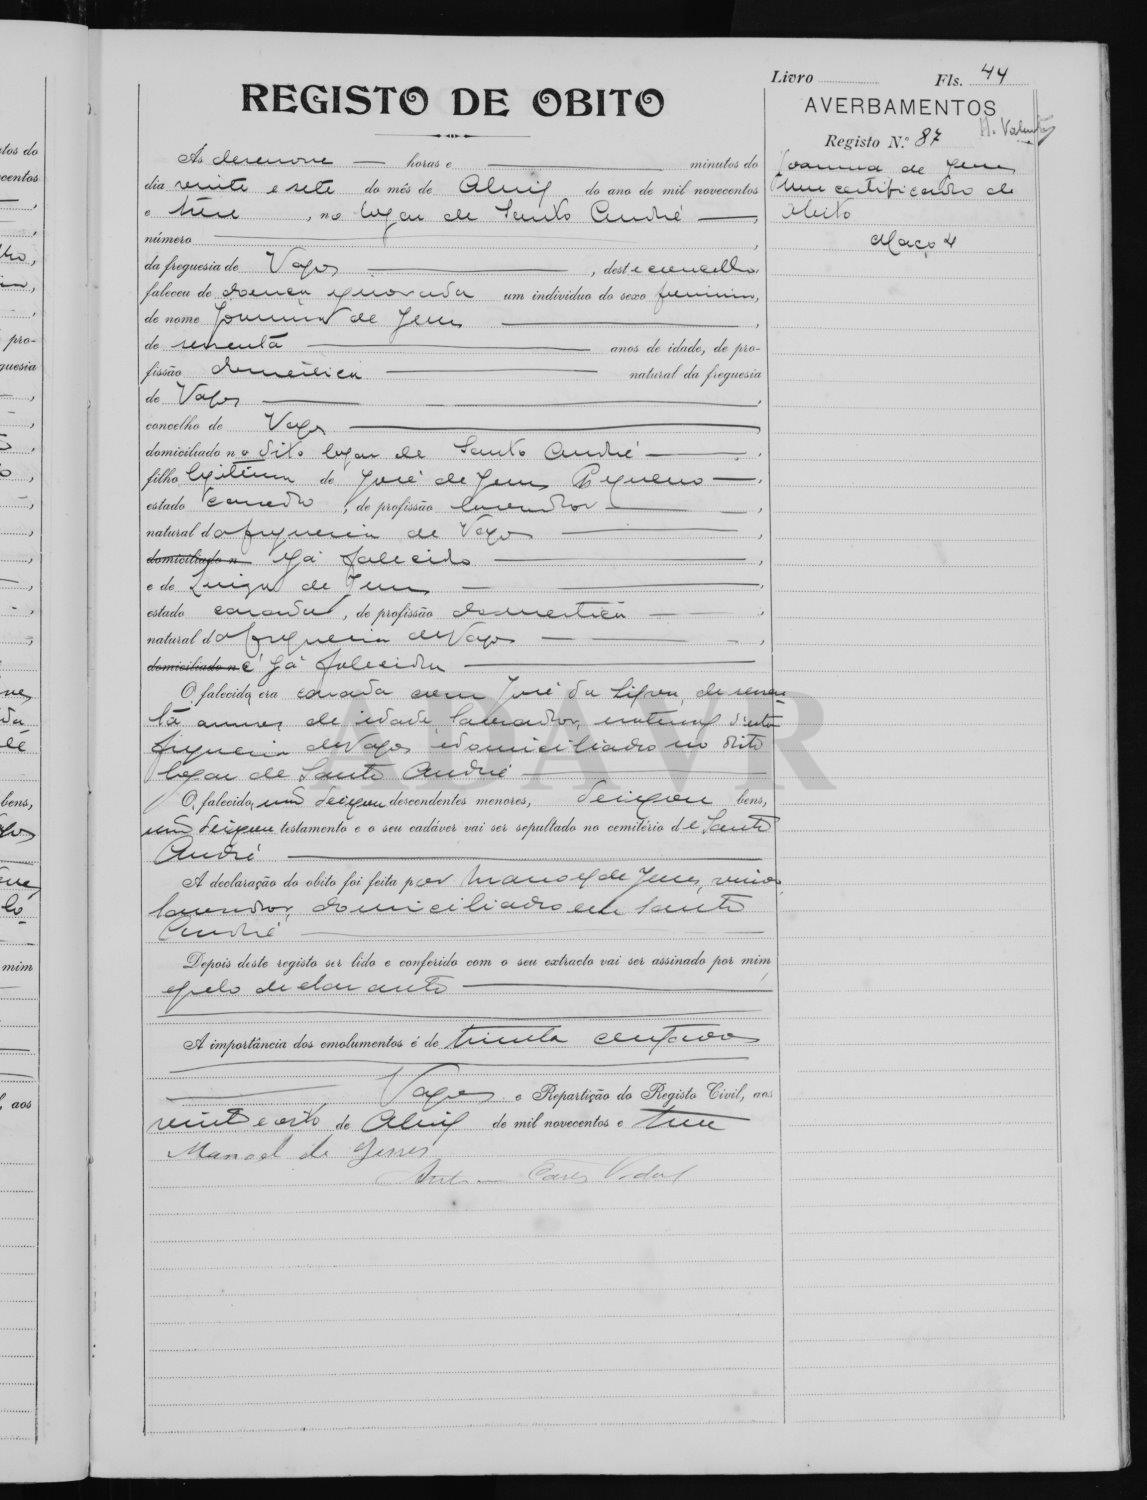 Livro
Fls. 44
REGISTO DE OBITO
AVERBAMENTOS
Registo N.º 87
Joanna de Jesus
um certificado de
obito
Maço 4
Ás desenove horas e minutos do
dia vinte e sete do mês de Abril do ano de mil novecentos
e treze, no logar de Santo André,
número
da freguesia de Vagos, deste concelho,
faleceu de doença ignorada um individuo do sexo feminino,
de nome Joanna de Jesus,
de sessenta anos de idade, de pro-
fissão domestica natural da freguesia
de Vagos,
concelho de Vagos
domiciliado no dito logar de Santo André,
filho legitima de José de Jesus Pequeno,
estado casado, de profissão lavrador
natural da freguesia de Vagos
domiciliado n já falecido,
e de Luiza de Jesus,
estado casada, de profissão domestica,
natural da freguesia de Vagos,
domiciliado n é já falecida
O falecido, era casada com José da Silva, de sessen
ta annos de idade lavrador, natural desta
freguesia de Vagos e domiciliado no dito
logar de Santo André
O falecido, não deixou descendentes menores, deixou bens,
não deixou testamento e o seu cadáver vai ser sepultado no cemitério de Santo
André
A declaração do obito foi feita por Manoel de Jesus,
lavrador, domiciliado em Santo
André
Depois deste registo ser lido e conferido com o seu extracto vai ser assinado por mim
e pelo declarante
A importância dos emolumentos é de trinta centavos
Vagos e Repartição do Registo Civil, aos
vinte e oito de Abril de mil novecentos e treze
Manoel de Jesus
Vidal
ADAVR